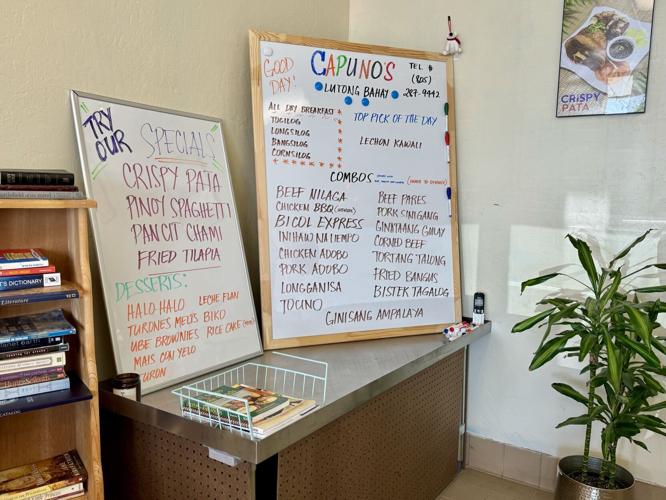 TRY OUR
SPECIALS
CRISPY PATA
PINOY SPAGHETTI
PANCIT CHAMI
FRIED TILAPIA
DESSERTS:
HALO HALO LECHE FLAN
BIKO
UBE BROWNIES RICE CAKE
MAIS CON YELO
TURON
GOOD DAY!
CAPUNO'S
LUTONG BAHAY
TEL. #
(805)
287-9442
ALL DAY BREAKFAST
TOCILOG
LONGSILOG
BANGSILOG
CORNSILOG
TOP PICK OF THE DAY
LECHON KAWALI
COMBOS
BEEF NILAGA
CHICKEN BBQ
BICOL EXPRESS
INIHAW NA LIEMPO
CHICKEN ADOBO
PORK ADOBO
LONGGANISA
TOCINO
BEEF PARES
PORK SINIGANG
GINATAANG GULAY
CORNED BEEF
TORTANG TALONG
FRIED BANGUS
BISTEK TAGALOG
GINISANG AMPALAYA
CRISPY
PATA
DICTIONARY
Literature